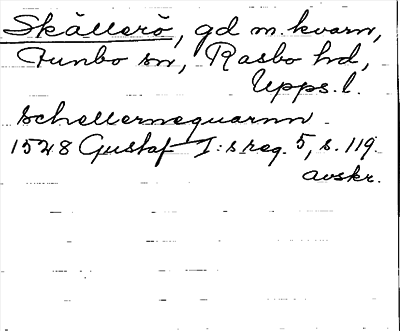 Skällerö, gd m. kvarn,
Funbo sn, Rasbo hd,
Upps. l.
Schellernequarnn
1528 Gustaf I:s reg. 5, s. 119.
avskr.